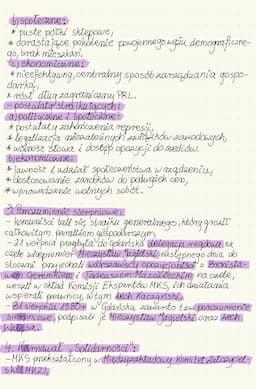 b) społeczne:
* puste półki sklepowe,
* dorastające pokolenie powojennego wyżu demograficzne-
go, brak mieszkań.
c) ekonomiczne:
* nieefektywny, centralny sposób zarządzania gospo-
darką,
* rósł dług zagraniczny PRL.
- postulaty strajkujących:
a) polityczne i społeczne:
* postulaty zakończenia represji,
* legalizacja niezależnych związków zawodowych,
* wolność słowa i dostęp opozycji do mediów.
b) ekonomiczne:
* jawność i udział społeczeństwa w rządzeniu,
* dostosowanie zarobków do podwyżek cen,
* wprowadzenie wolnych sobót.
3. Porozumienie sierpniowe:
- komuniści bali się strajku generalnego, który groził
całkowitym paraliżem gospodarczym,
- 21 sierpnia przybyła do Gdańska delegacja rządowa na
czele wicepremier Mieczysław Jagielski, następnego dnia do
stoczni przyjechali warszawscy opozycjoniści z Bronisła-
wem Geremkiem i Tadeuszem Mazowieckim na czele,
weszli w skład Komisji Ekspertów MKS, ich działania
wspierali prawnicy, w tym Lech Kaczyński,
- 31 sierpnia 1980 w Gdańsku zawarto tzw. porozumienie
sierpniowe, podpisali je Mieczysław Jagielski oraz Lech
Wałęsa.
4. Karnawał „Solidarności":
- MKS przekształcony w Międzyzakładowy Komitet Założyciel-
ski (MKZ),